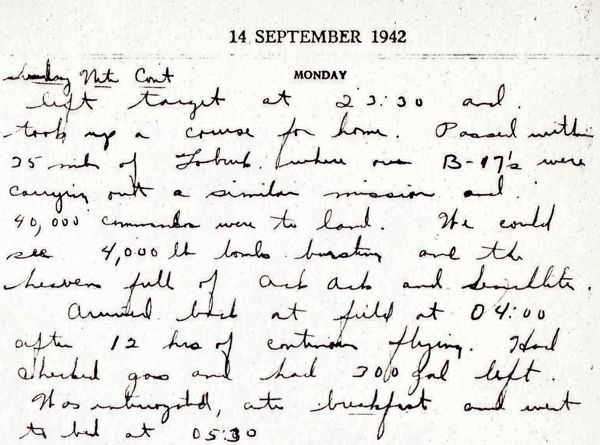 14 SEPTEMBER 1942
Sunday Nite Cont
MONDAY
left target at 23:30 and
took up a course for home. Passed within
25 miles of Tobruk. where our B-17's were
carrying out a similar mission and
40,000 commandos were to land. We could
see 4,000 lb bombs bursting and the
heavens full of Ack Ack and Searchlites.
Arrived back at field at 04:00
after 12 hrs of continous flying. Had
checked gas and had 300 gal left.
Was interrogated, ate breakfast and went
to bed at 05:30